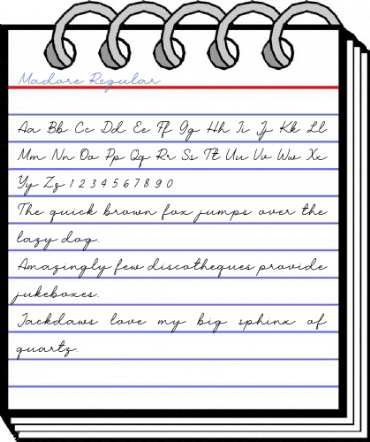 Madore Regular
Aa Bb Cc Dd Ee Ff Gg Hh Ii Jj Kk Ll
Mm Nn Oo Pp Qq Rr Ss Tt Uu Vv Ww Xx
Yy Zz 1 2 3 4 5 6 7 8 9 0
The quick brown fox jumps over the
lazy dog.
Amazingly few discotheques provide
jukeboxes.
Jackdaws love my big sphinx of
quartz.